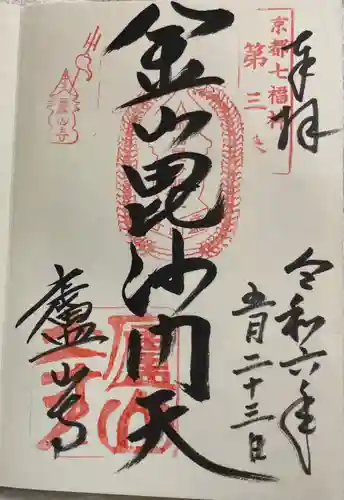 奉拝
令和六年
五月二十三日
京都七福神
第三
金山毘沙門天
廬山寺
廬山寺